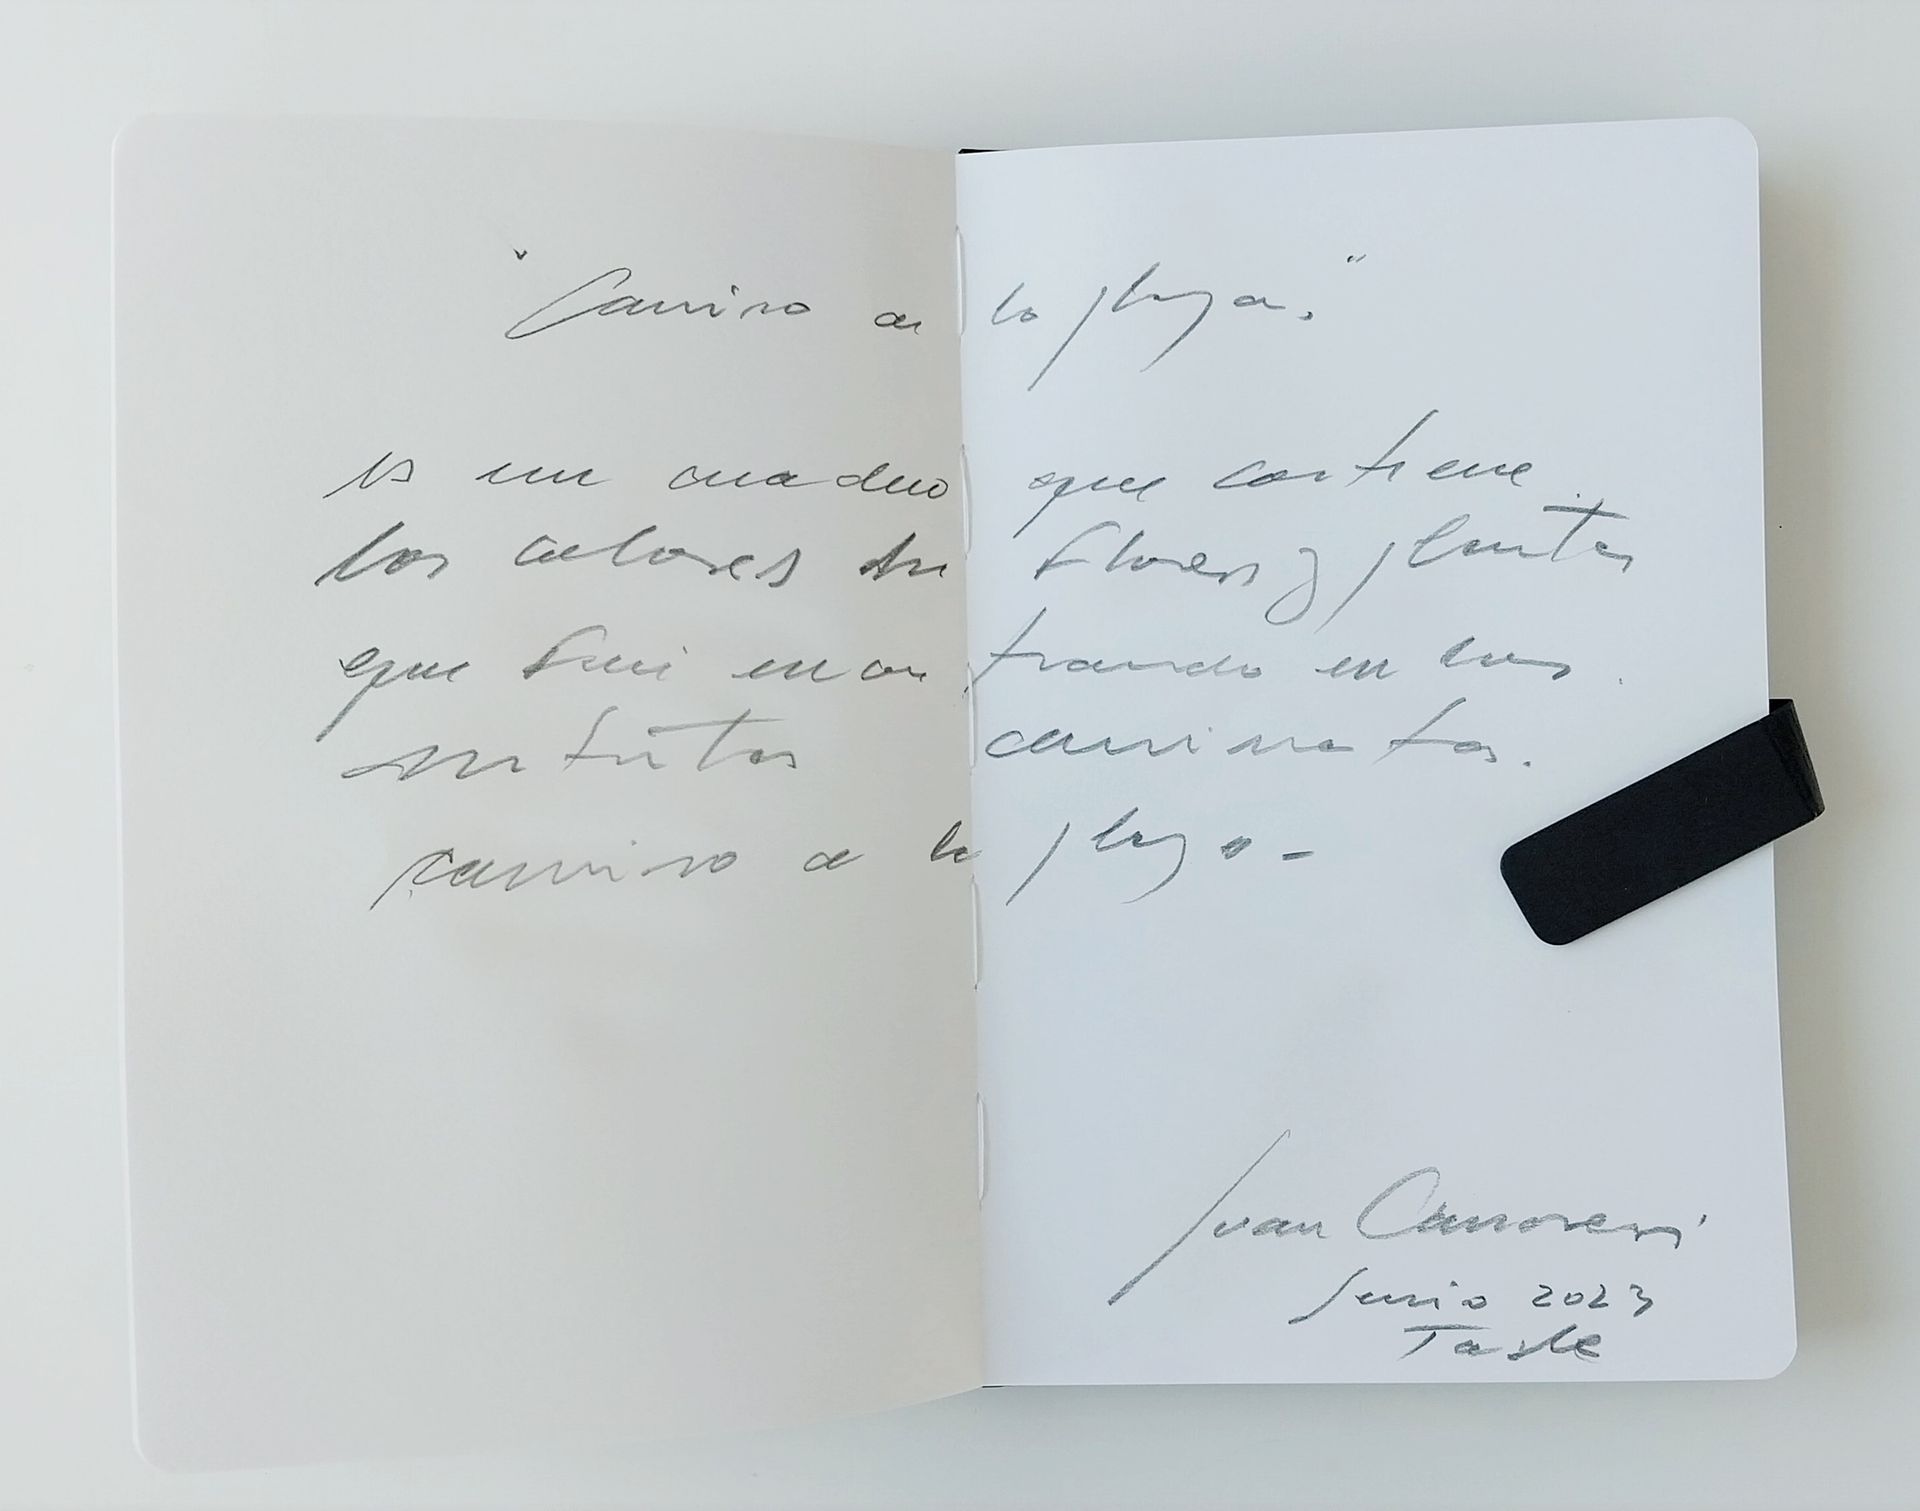 "Camino a la playa."
es un cuaderno que contiene
los colores de flores y plantas
que fui encontrando en las
infinitas caminatas.
camino a la playa -
Juan
Junio 2023